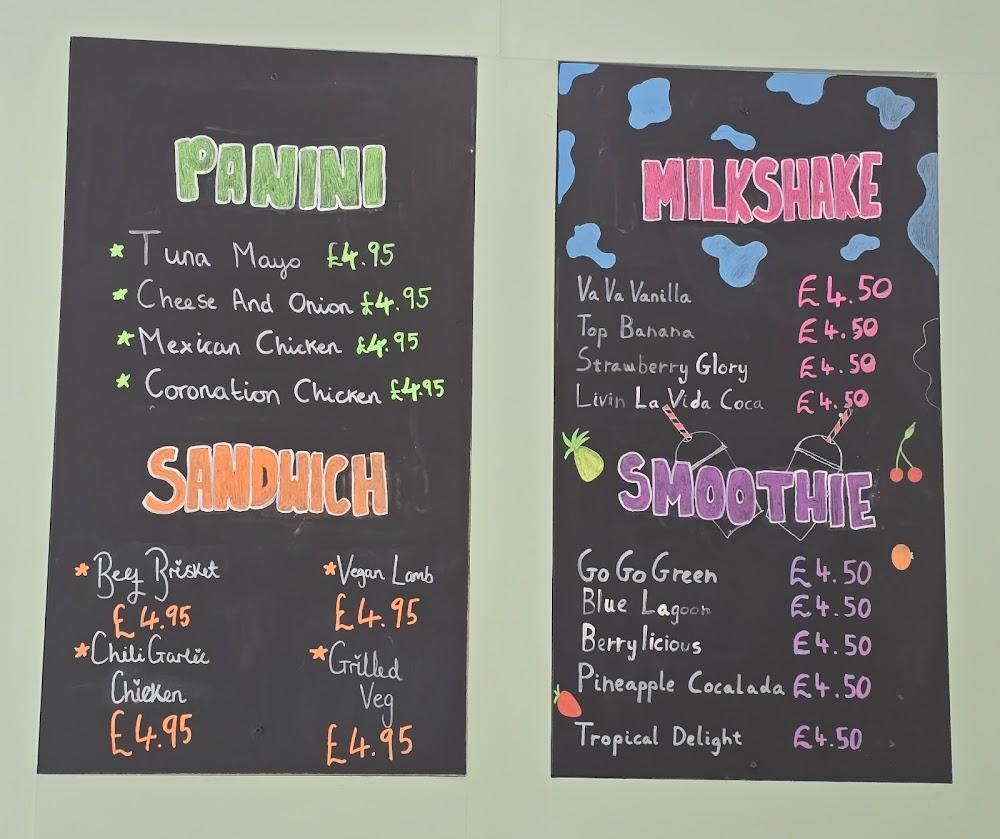 PANINI
Tuna Mayo £4.95
Cheese And Onion £4.95
Mexican Chicken £4.95
Coronation Chicken £4.95
SANDWICH
Beef Brisket
£4.95
Chili Garlic
Chicken
£4.95
Vegan Lamb
£4.95
Grilled
Veg
£4.95
MILKSHAKE
Va Va Vanilla £4.50
Top Banana £4.50
Strawberry Glory £4.50
Livin La Vida Coca £4.50
SMOOTHIE
Go Go Green £4.50
Blue Lagoon £4.50
Berrylicious £4.50
Pineapple Cocalada £4.50
Tropical Delight £4.50